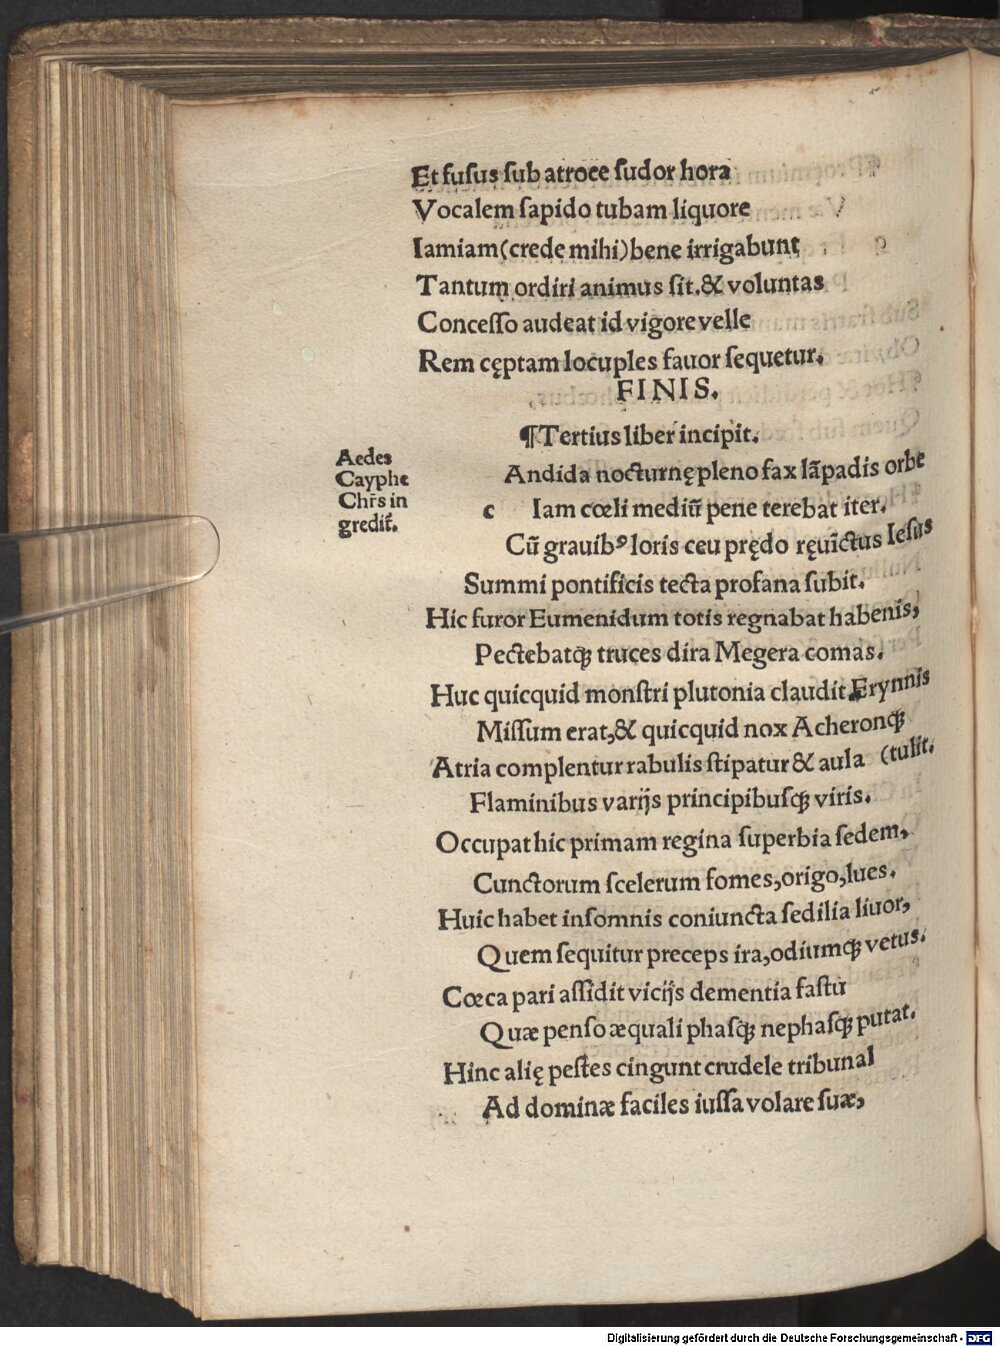 Et fuſus ſub atroce ſudor hora
Vocalem ſapido tubam liquore
Iamiam(credę mihi)bene irrigabunt
Tantum ordiri animus ſit.& voluntas
Conceſſo audeat id vigore velle
Rem cęptam locuples fauor ſequetur.
FINIS.
¶Tertius liber incipit.
Aedes
Cayphe
Chr̄s in
gredit̄.
Andida nocturnę pleno fax lāpadis orbe
c Iam cœli mediū pene terebat iter.
Cū grauibꝰ loris ceu prędo ręuīctus Ieſus
Summi pontificis tecta profana ſubit.
Hic furor Eumenidum totis regnabat habenis,
Pectebatqꝫ truces dira Megera comas.
Huc quicquid monſtri plutonia claudit Erynnis
Miſſum erat,& quicquid nox Acheronqꝫ
(tulit.
Atria complentur rabulis ſtipatur & aula
Flaminibus varijs principibuſqꝫ viris.
Occupat hic primam regina ſuperbia ſedem,
Cunctorum ſcelerum fomes,origo,lues.
Huic habet inſomnis coniuncta ſedilia liuor,
Quem ſequitur preceps ira,odiumqꝫ vetus.
Cœca pari aſſidit vicijs dementia faſtu
Quæ penſo æquali phaſqꝫ nephaſqꝫ putat.
Hinc alię peſtes cingunt crudele tribunal
Ad dominæ faciles iuſſa volare ſuæ,
Digitalisierung gefördert durch die Deutsche Forschungsgemeinschaft - DFG